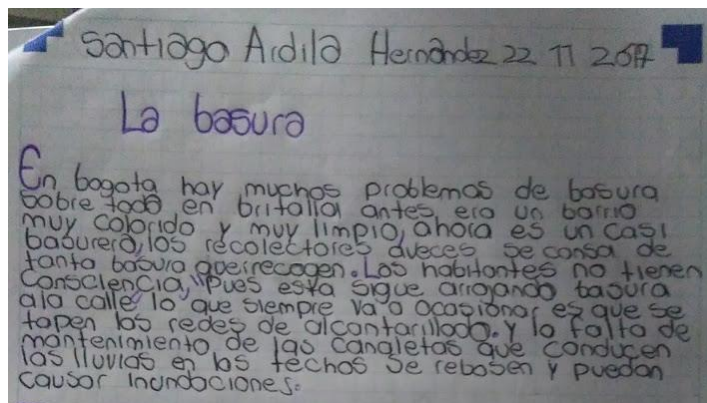 Santiago Ardila Hernández 22 11 2017
La basura
En bogota hay muchos problemas de basura
sobre todo en britalia antes era un barrio
muy colorido y muy limpio, ahora es un casi
basurero, los recolectores aveces se cansa de
tanta basura que recogen. Los habitantes no tienen
consciencia, pues esta sigue arrogando basura
ala calle lo que siempre va a ocasionar es que se
tapen las redes de alcantarillado. y la falta de
mantenimiento de las canaletas que conducen
las lluvias en los techos se rebosen y puedan
causar inundaciones.